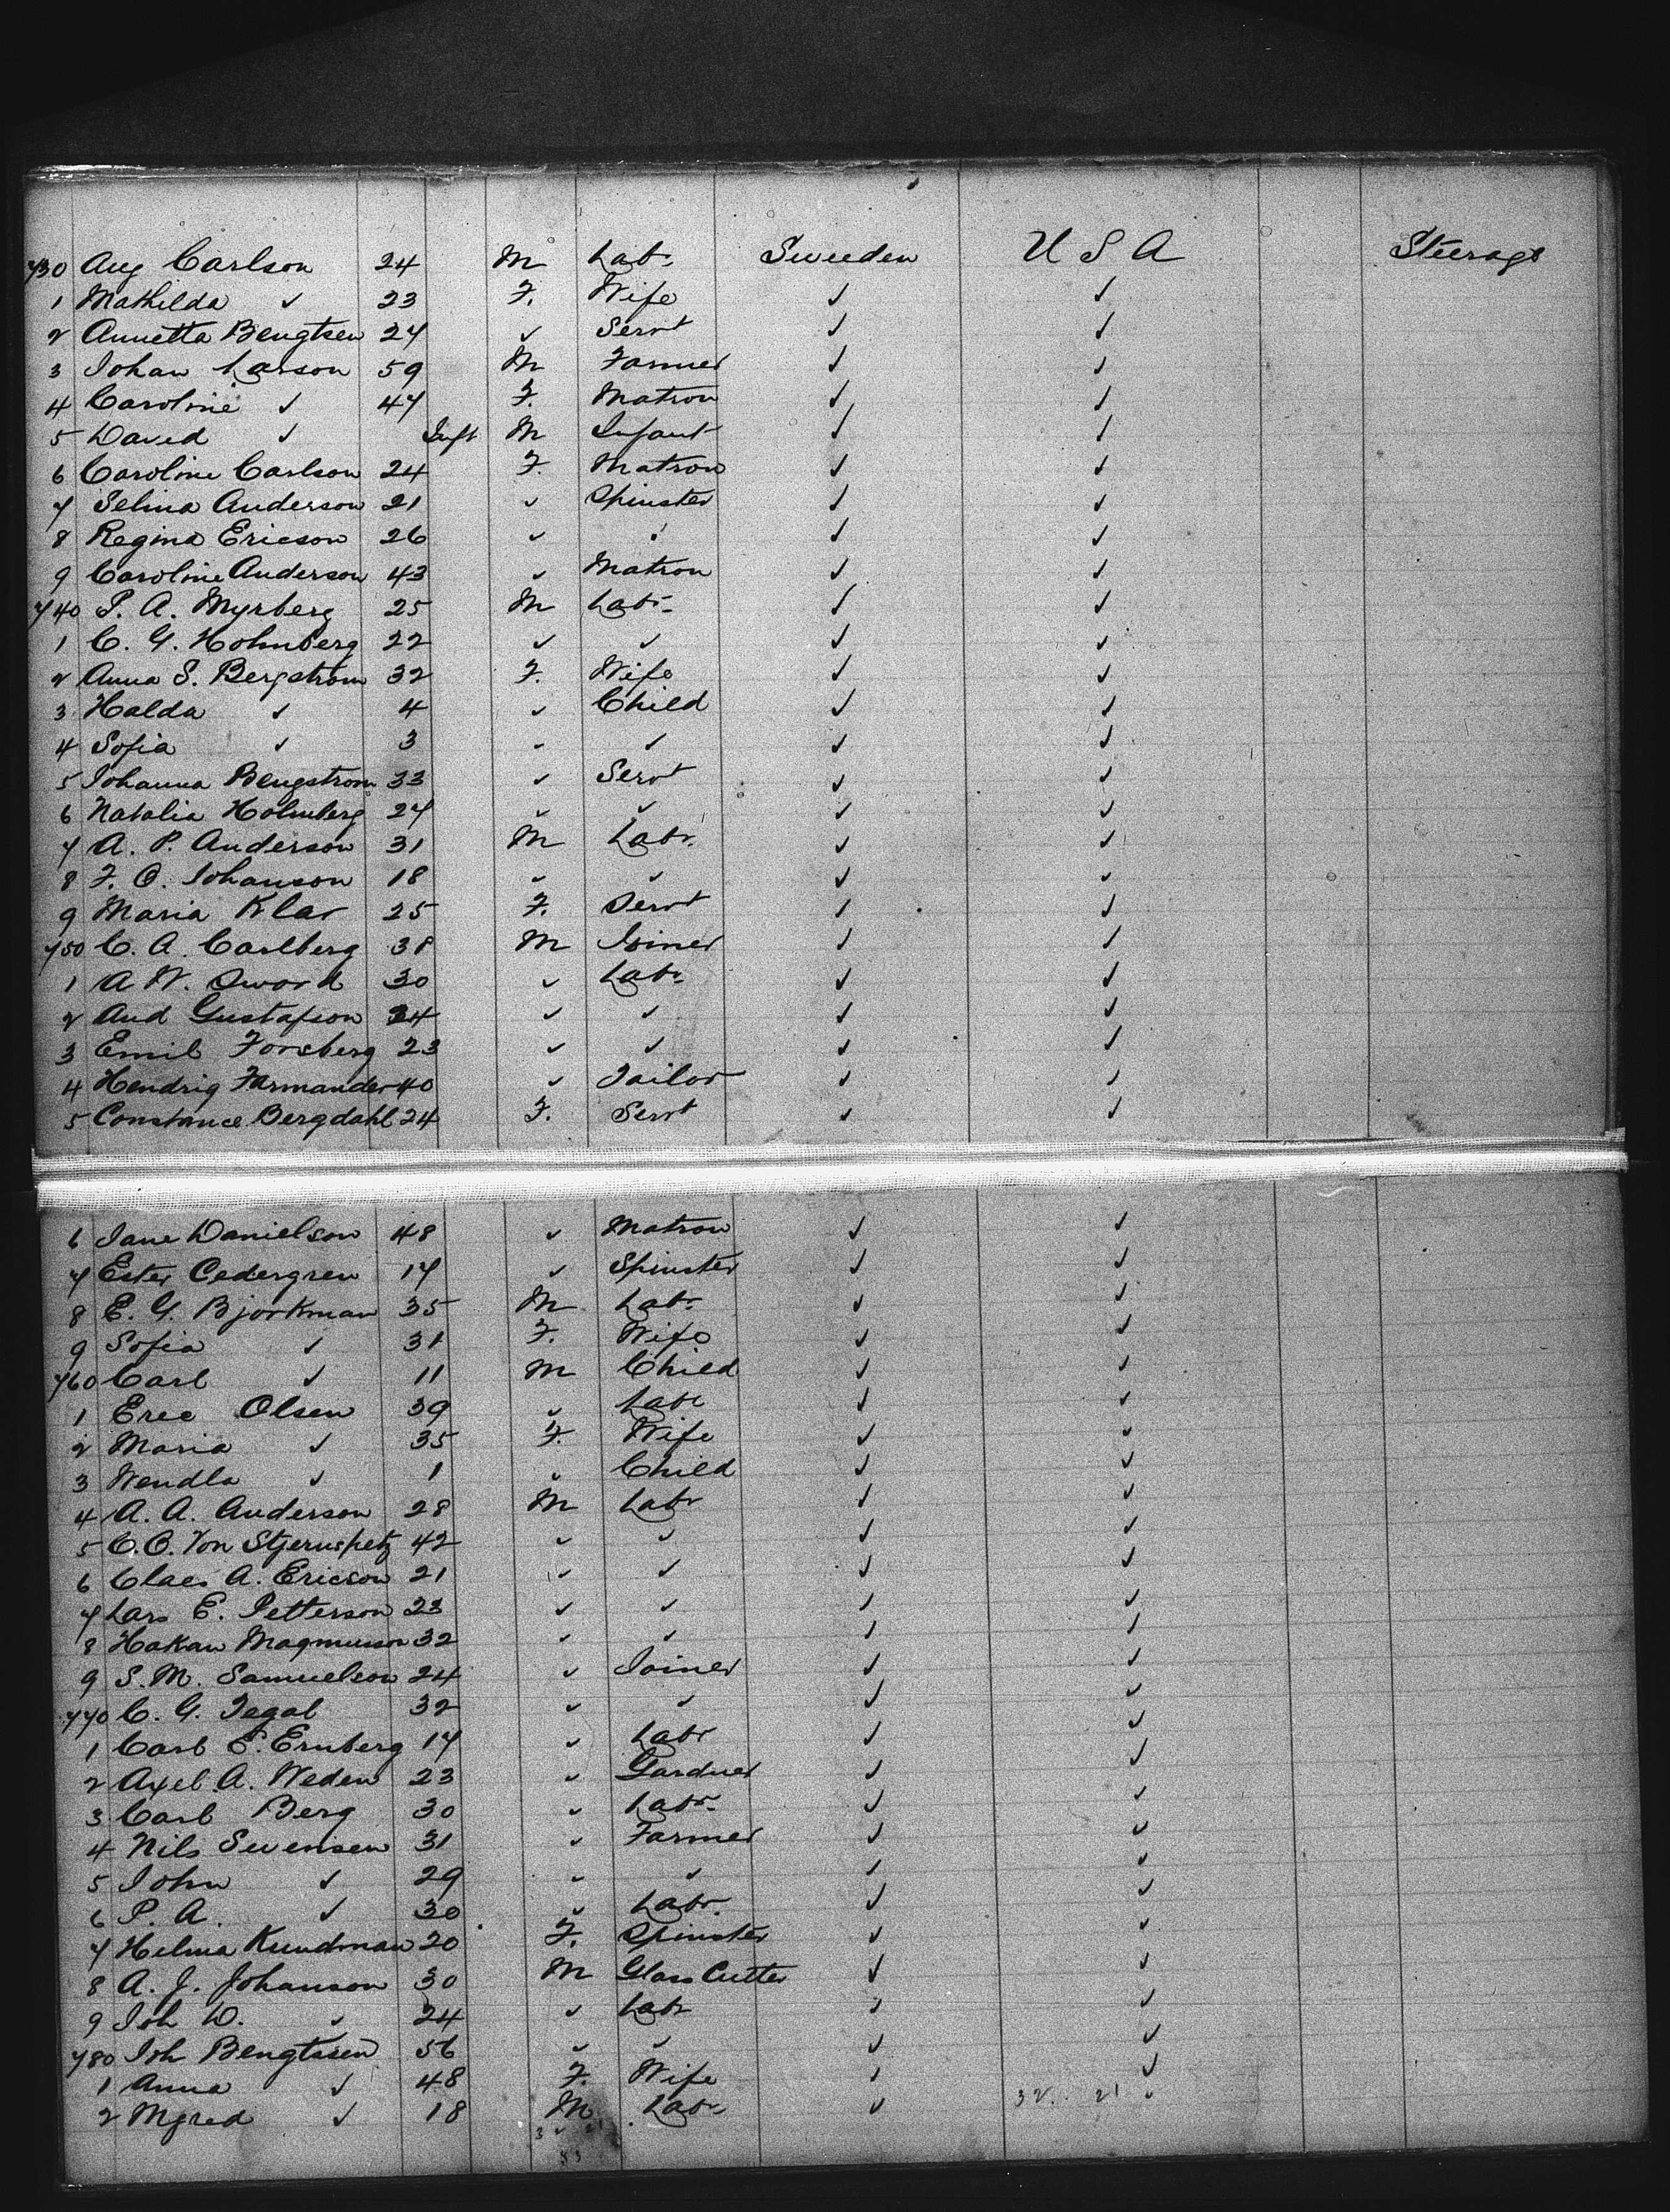 730 Aug Carlson 24 M Labr Sweden U S A Steerage
1 Mathilda ✓ 23 F. Wife ✓ ✓
2 Annetta Bengtsen 27 ✓ Servt ✓ ✓
3 Johan Larson 59 M Farmer ✓ ✓
4 Caroline ✓ 47 F. Matron ✓ ✓
5 David ✓ Inft M Infant ✓ ✓
6 Caroline Carlson 24 F. Matron ✓ ✓
7 Selma Anderson 21 ✓ Spinster ✓ ✓
8 Regina Ericson 26 ✓ ✓ ✓ ✓
9 Caroline Anderson 43 ✓ Matron ✓ ✓
740 P. A. Myrberg 25 M Labr ✓ ✓
1 C. G. Holmberg 22 ✓ ✓ ✓ ✓
2 Anna S. Bergstrom 32 F. Wife ✓ ✓
3 Halda ✓ 4 ✓ Child ✓ ✓
4 Sofia ✓ 3 ✓ ✓ ✓ ✓
5 Johanna Bengstrom 33 ✓ Servt ✓ ✓
6 Natalia Holmberg 27 ✓ ✓ ✓ ✓
7 A. P. Anderson 31 M Labr. ✓ ✓
8 F. O. Johanson 18 ✓ ✓ ✓ ✓
9 Maria Klar 25 F. Servt ✓ ✓
750 C. A. Carlberg 38 M Joiner ✓ ✓
1 A W. Sword 30 ✓ Labr ✓ ✓
2 And Gustafson 34 ✓ ✓ ✓ ✓
3 Emil Forsberg 23 ✓ ✓ ✓ ✓
4 Hendrig Farmander 40 ✓ Tailor ✓ ✓
5 Constance Bergdahl 24 F. Servt ✓ ✓
6 Jane Danielson 48 ✓ Matron ✓ ✓
7 Ester Cedergren 17 ✓ Spinster ✓ ✓
8 E. G. Bjorkman 35 M Labr ✓ ✓
9 Sofia ✓ 31 F. Wife ✓ ✓
760 Carl ✓ 11 M Child ✓ ✓
1 Eric Olsen 39 ✓ Labr ✓ ✓
2 Maria ✓ 35 F. Wife ✓ ✓
3 Wendla ✓ 1 ✓ Child ✓ ✓
4 A. A. Anderson 28 M Labr ✓ ✓
5 C. O. Von Stjernspetz 42 ✓ ✓ ✓ ✓
6 Claes A. Ericson 21 ✓ ✓ ✓ ✓
7 Lars E. Petterson 23 ✓ ✓ ✓ ✓
8 Hakan Magnusson 32 ✓ ✓ ✓ ✓
9 S. M. Samuelson 24 ✓ Joiner ✓ ✓
770 C. G. Tegal 32 ✓ ✓ ✓ ✓
1 Carl E. Ernberg 17 ✓ Labr ✓ ✓
2 Axel A. Weden 23 ✓ Gardner ✓ ✓
3 Carl Berg 30 ✓ Labr. ✓ ✓
4 Nils Svensen 31 ✓ Farmer ✓ ✓
5 John ✓ 29 ✓ ✓ ✓ ✓
6 P. A. ✓ 30 ✓ Labr. ✓ ✓
7 Helma Kundman 20 F. Spinster ✓ ✓
8 A. J. Johanson 30 M Glass Cutter ✓ ✓
9 Joh W. ✓ 24 ✓ Labr ✓ ✓
780 Joh Bengtssen 56 ✓ ✓ ✓ ✓
1 Anna ✓ 48 F. Wife ✓ ✓
2 Mgred ✓ 18 M Labr ✓ 32. 21 ✓
53